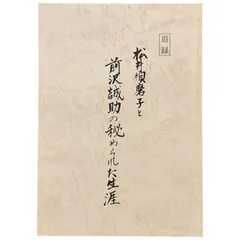 追録
松井須磨子と
前沢誠助の秘められた生涯